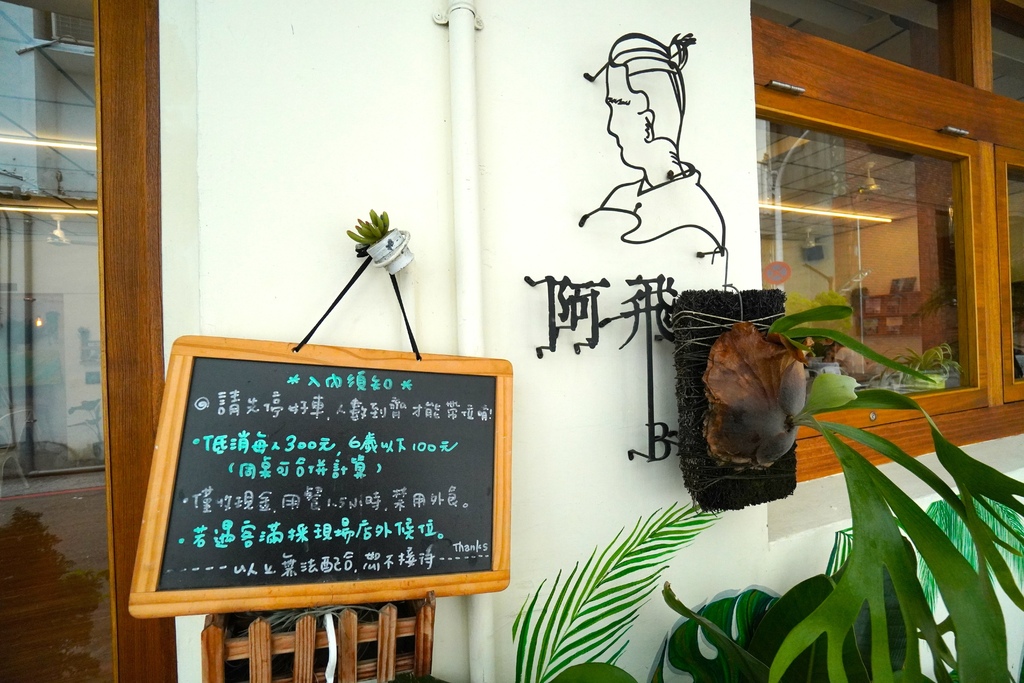 *入內須知*
◎請先停好車,人數到齊才能帶位唷!
·低消每人300元,6歲以下100元
(同桌可合併計算)
·僅收現金,用餐1.5小時,禁用外食。
·若遇客滿採現場店外候位。
Thanks
-----以上無法配合,恕不接待-----
阿飛
B